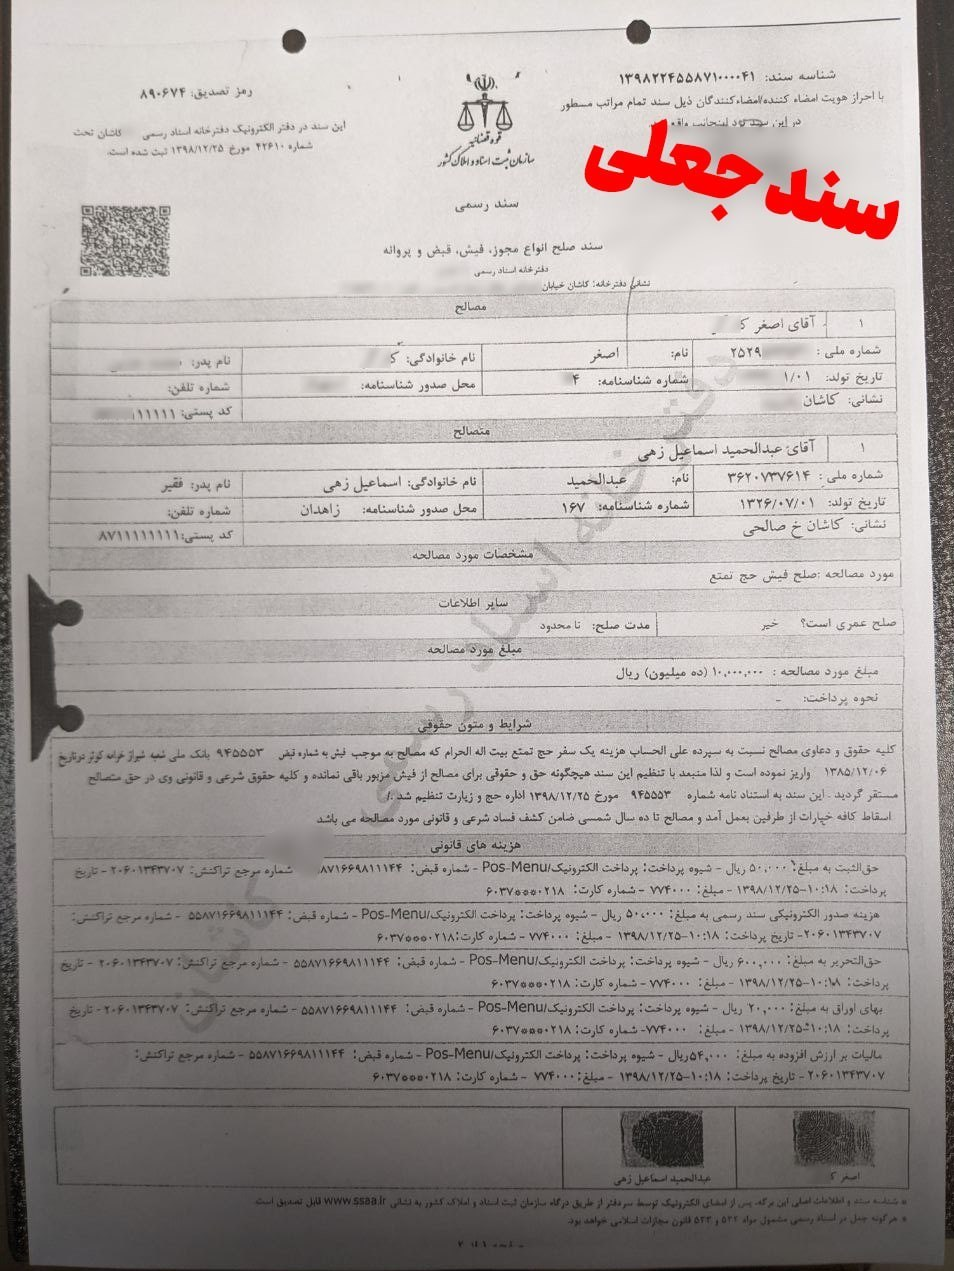 شناسه سند: ۱۳۹۸۲۲۴۵۵۸۷۱۰۰۰۰۴۱
با احراز هویت امضاء کننده/امضاءکنندگان ذیل سند تمام مراتب مسطور
در این سند نزد اینجانب واقع
سند جعلی
قوه قضائیه
سازمان ثبت اسناد و املاک کشور
رمز تصدیق: ۸۹۰۶۷۴
این سند در دفتر الکترونیک دفترخانه اسناد رسمی کاشان تحت
شماره ۴۲۶۱۰ مورخ ۱۳۹۸/۱۲/۲۵ ثبت شده است.
سند رسمی
سند صلح انواع مجوز، فیش، قبض و پروانه
دفترخانه اسناد رسمی
نشانی دفترخانه: کاشان خیابان
مصالح
۱ آقای اصغر ک
شماره ملی : ۲۵۲۹ نام: اصغر نام خانوادگی: ک نام پدر:
تاریخ تولد: ۱/۰۱ شماره شناسنامه: ۴ محل صدور شناسنامه: شماره تلفن:
نشانی: کاشان کد پستی: ۱۱۱۱۱۱
متصالح
۱ آقای عبدالحمید اسماعیل زهی
شماره ملی : ۳۶۲۰۷۳۷۶۱۴ نام: عبدالحمید نام خانوادگی: اسماعیل زهی نام پدر: فقیر
تاریخ تولد: ۱۳۲۶/۰۷/۰۱ شماره شناسنامه: ۱۶۷ محل صدور شناسنامه: زاهدان شماره تلفن:
نشانی: کاشان خ صالحی کد پستی: ۸۷۱۱۱۱۱۱۱۱
مشخصات مورد مصالحه
مورد مصالحه :صلح فیش حج تمتع
سایر اطلاعات
صلح عمری است؟ خیر مدت صلح: نا محدود
مبلغ مورد مصالحه
مبلغ مورد مصالحه : ۱۰,۰۰۰,۰۰۰ (ده میلیون) ریال
نحوه پرداخت: -
شرایط و متون حقوقی
کلیه حقوق و دعاوی مصالح نسبت به سپرده علی الحساب هزینه یک سفر حج تمتع بیت اله الحرام که مصالح به موجب فیش به شماره فیش ۹۴۵۵۵۳ بانک ملی شعبه شیراز خرانه کوثر درتاریخ
۱۳۸۵/۱۲/۰۶ واریز نموده است و لذا منبعد با تنظیم این سند هیچگونه حق و حقوقی برای مصالح از فیش مزبور باقی نمانده و کلیه حقوق شرعی و قانونی وی در حق متصالح
مستقر گردید . این سند به استناد نامه شماره ۹۴۵۵۵۳ مورخ ۱۳۹۸/۱۲/۲۵ اداره حج و زیارت تنظیم شد ./
اسقاط کافه خیارات از طرفین بعمل آمد و مصالح تا ده سال شمسی ضامن کشف فساد شرعی و قانونی مورد مصالحه می باشد
هزینه های قانونی
حق‌الثبت به مبلغ: ۵۰,۰۰۰ ریال - شیوه پرداخت: پرداخت الکترونیک/Pos-Menu - شماره قبض: ۸۷۱۶۶۹۸۱۱۱۴۴ شماره مرجع تراکنش: ۲۰۶۰۱۳۴۳۷۰۷ - تاریخ
پرداخت: ۱۰:۱۸-۱۳۹۸/۱۲/۲۵ - مبلغ: ۷۷۴۰۰۰ - شماره کارت: ۶۰۳۷***۰۲۱۸
هزینه صدور الکترونیکی سند رسمی به مبلغ: ۵۰,۰۰۰ ریال - شیوه پرداخت: پرداخت الکترونیک/Pos-Menu - شماره قبض: ۵۵۸۷۱۶۶۹۸۱۱۱۴۴ - شماره مرجع تراکنش:
۲۰۶۰۱۳۴۳۷۰۷- تاریخ پرداخت: ۱۰:۱۸-۱۳۹۸/۱۲/۲۵ - مبلغ: ۷۷۴۰۰۰ - شماره کارت: ۶۰۳۷***۰۲۱۸
حق‌التحریر به مبلغ: ۶۰۰,۰۰۰ ریال - شیوه پرداخت: پرداخت الکترونیک/Pos-Menu - شماره قبض: ۵۵۸۷۱۶۶۹۸۱۱۱۴۴ - شماره مرجع تراکنش: ۲۰۶۰۱۳۴۳۷۰۷ - تاریخ
پرداخت: ۱۰:۱۸-۱۳۹۸/۱۲/۲۵ - مبلغ: ۷۷۴۰۰۰ - شماره کارت: ۶۰۳۷***۰۲۱۸
بهای اوراق به مبلغ: ۲۰,۰۰۰ ریال - شیوه پرداخت: پرداخت الکترونیک/Pos-Menu - شماره قبض: ۵۵۸۷۱۶۶۹۸۱۱۱۴۴ - شماره مرجع تراکنش: ۲۰۶۰۱۳۴۳۷۰۷ - تاریخ
پرداخت: ۱۰:۱۸-۱۳۹۸/۱۲/۲۵ - مبلغ: ۷۷۴۰۰۰- شماره کارت: ۶۰۳۷***۰۲۱۸
مالیات بر ارزش افزوده به مبلغ: ۵۴,۰۰۰ریال - شیوه پرداخت: پرداخت الکترونیک/Pos-Menu - شماره قبض: ۵۵۸۷۱۶۶۹۸۱۱۱۴۴ - شماره مرجع تراکنش:
۲۰۶۰۱۳۴۳۷۰۷- تاریخ پرداخت: ۱۰:۱۸-۱۳۹۸/۱۲/۲۵ - مبلغ: ۷۷۴۰۰۰ - شماره کارت: ۶۰۳۷***۰۲۱۸
دفترخانه اسناد رسمی کاشان
اصغر ک عبدالحمید اسماعیل زهی
* شناسه سند و اطلاعات اصلی این برگه، پس از امضای الکترونیک توسط سردفتر از طریق درگاه سازمان ثبت اسناد و املاک کشور به نشانی www.ssaa.ir قابل تصدیق است.
* هرگونه جعل در اسناد رسمی مشمول مواد ۵۳۲ و ۵۳۳ قانون مجازات اسلامی خواهد بود.